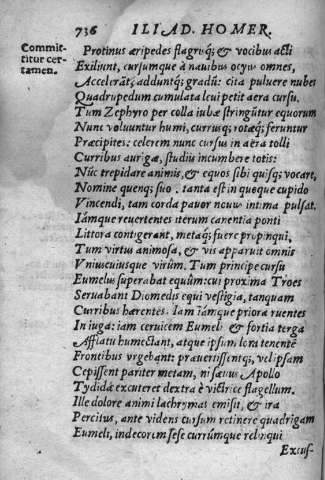 736 ILIAD. HOMER.
Commit-
titur cer-
tamen.
Protinus æripedes flagruq́; & vocibus acti
Exiliunt, cursumque à nauibus ocyus omnes,
Accelerãt, adduntq́; gradũ: cita puluere nubes
Quadrupedum cumulata leui petit aera cursu.
Tum Zephyro per colla iubæ stringũtur equorum
Nunc voluuntur humi, currusq; rotæq́; feruntur
Præcipites: celerem nunc cursus in aëra tolli
Curribus aurigæ, studiu incumbere totis:
Nũc trepidare animis, & equos sibi quisq; vocare,
Nomine quenq; suo. tanta est in queque cupido
Vincendi, tam corda pauor nouus intima pulsat.
Iámque reuertentes iterum canentia ponti
Littora contigerant, metaq́; fuere propinqui,
Tum virtus animosa, & vis apparuit omnis
Vniuscuiusque virûm. Tum principe cursu
Eumelus superabat equûm: cui proxima Troes
Seruabant Diomedis equi vestigia, tanquam
Curribus hærentes. Iam iámque priora ruentes
In iuga: iam ceruicem Eumeli & fortia terga
Afflatu humectant, atque ipsum lora tenentē
Frontibus vrgebant: præuenissentq́;, vel ipsam
Cepissent pariter metam, ni sæuus Apollo
Tydidæ excuteret dextra è victrice flagellum.
Ille dolore animi lachrymas emisit, & ira
Percitus, ante videns cursum retinere quadrigam
Eumeli, indecorem sese currúmque relinqui
Excus-